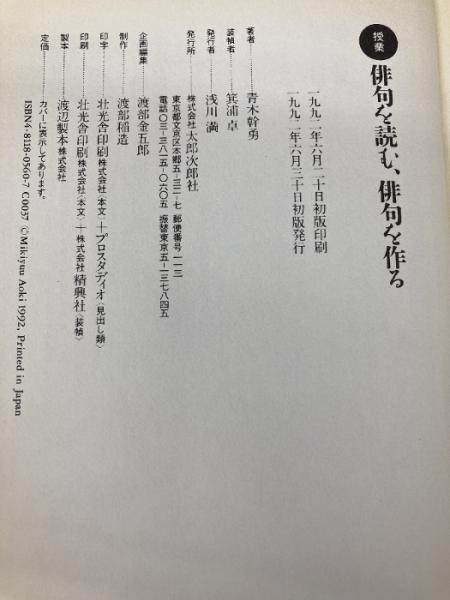 授業
俳句を読む、俳句を作る
一九九二年六月二十日初版印刷
一九九二年六月三十日初版発行
著者……青木幹勇
装幀者……箕浦卓
発行者……浅川満
発行所……株式会社太郎次郎社
東京都文京区本郷五-三二-七 郵便番号一一三
電話〇三-三八一五-〇六〇五 振替東京五-一三七八四五
企画編集……渡部金五郎
制作……渡部稲造
印字……壮光舎印刷株式会社〈本文〉+プロスタディオ〈見出し類〉
印刷……壮光舎印刷株式会社〈本文〉+株式会社精興社〈装幀〉
製本……渡辺製本株式会社
定価……カバーに表示してあります。
ISBN4-8118-0560-7 C0037 ©Mikiyuu Aoki 1992, Printed in Japan